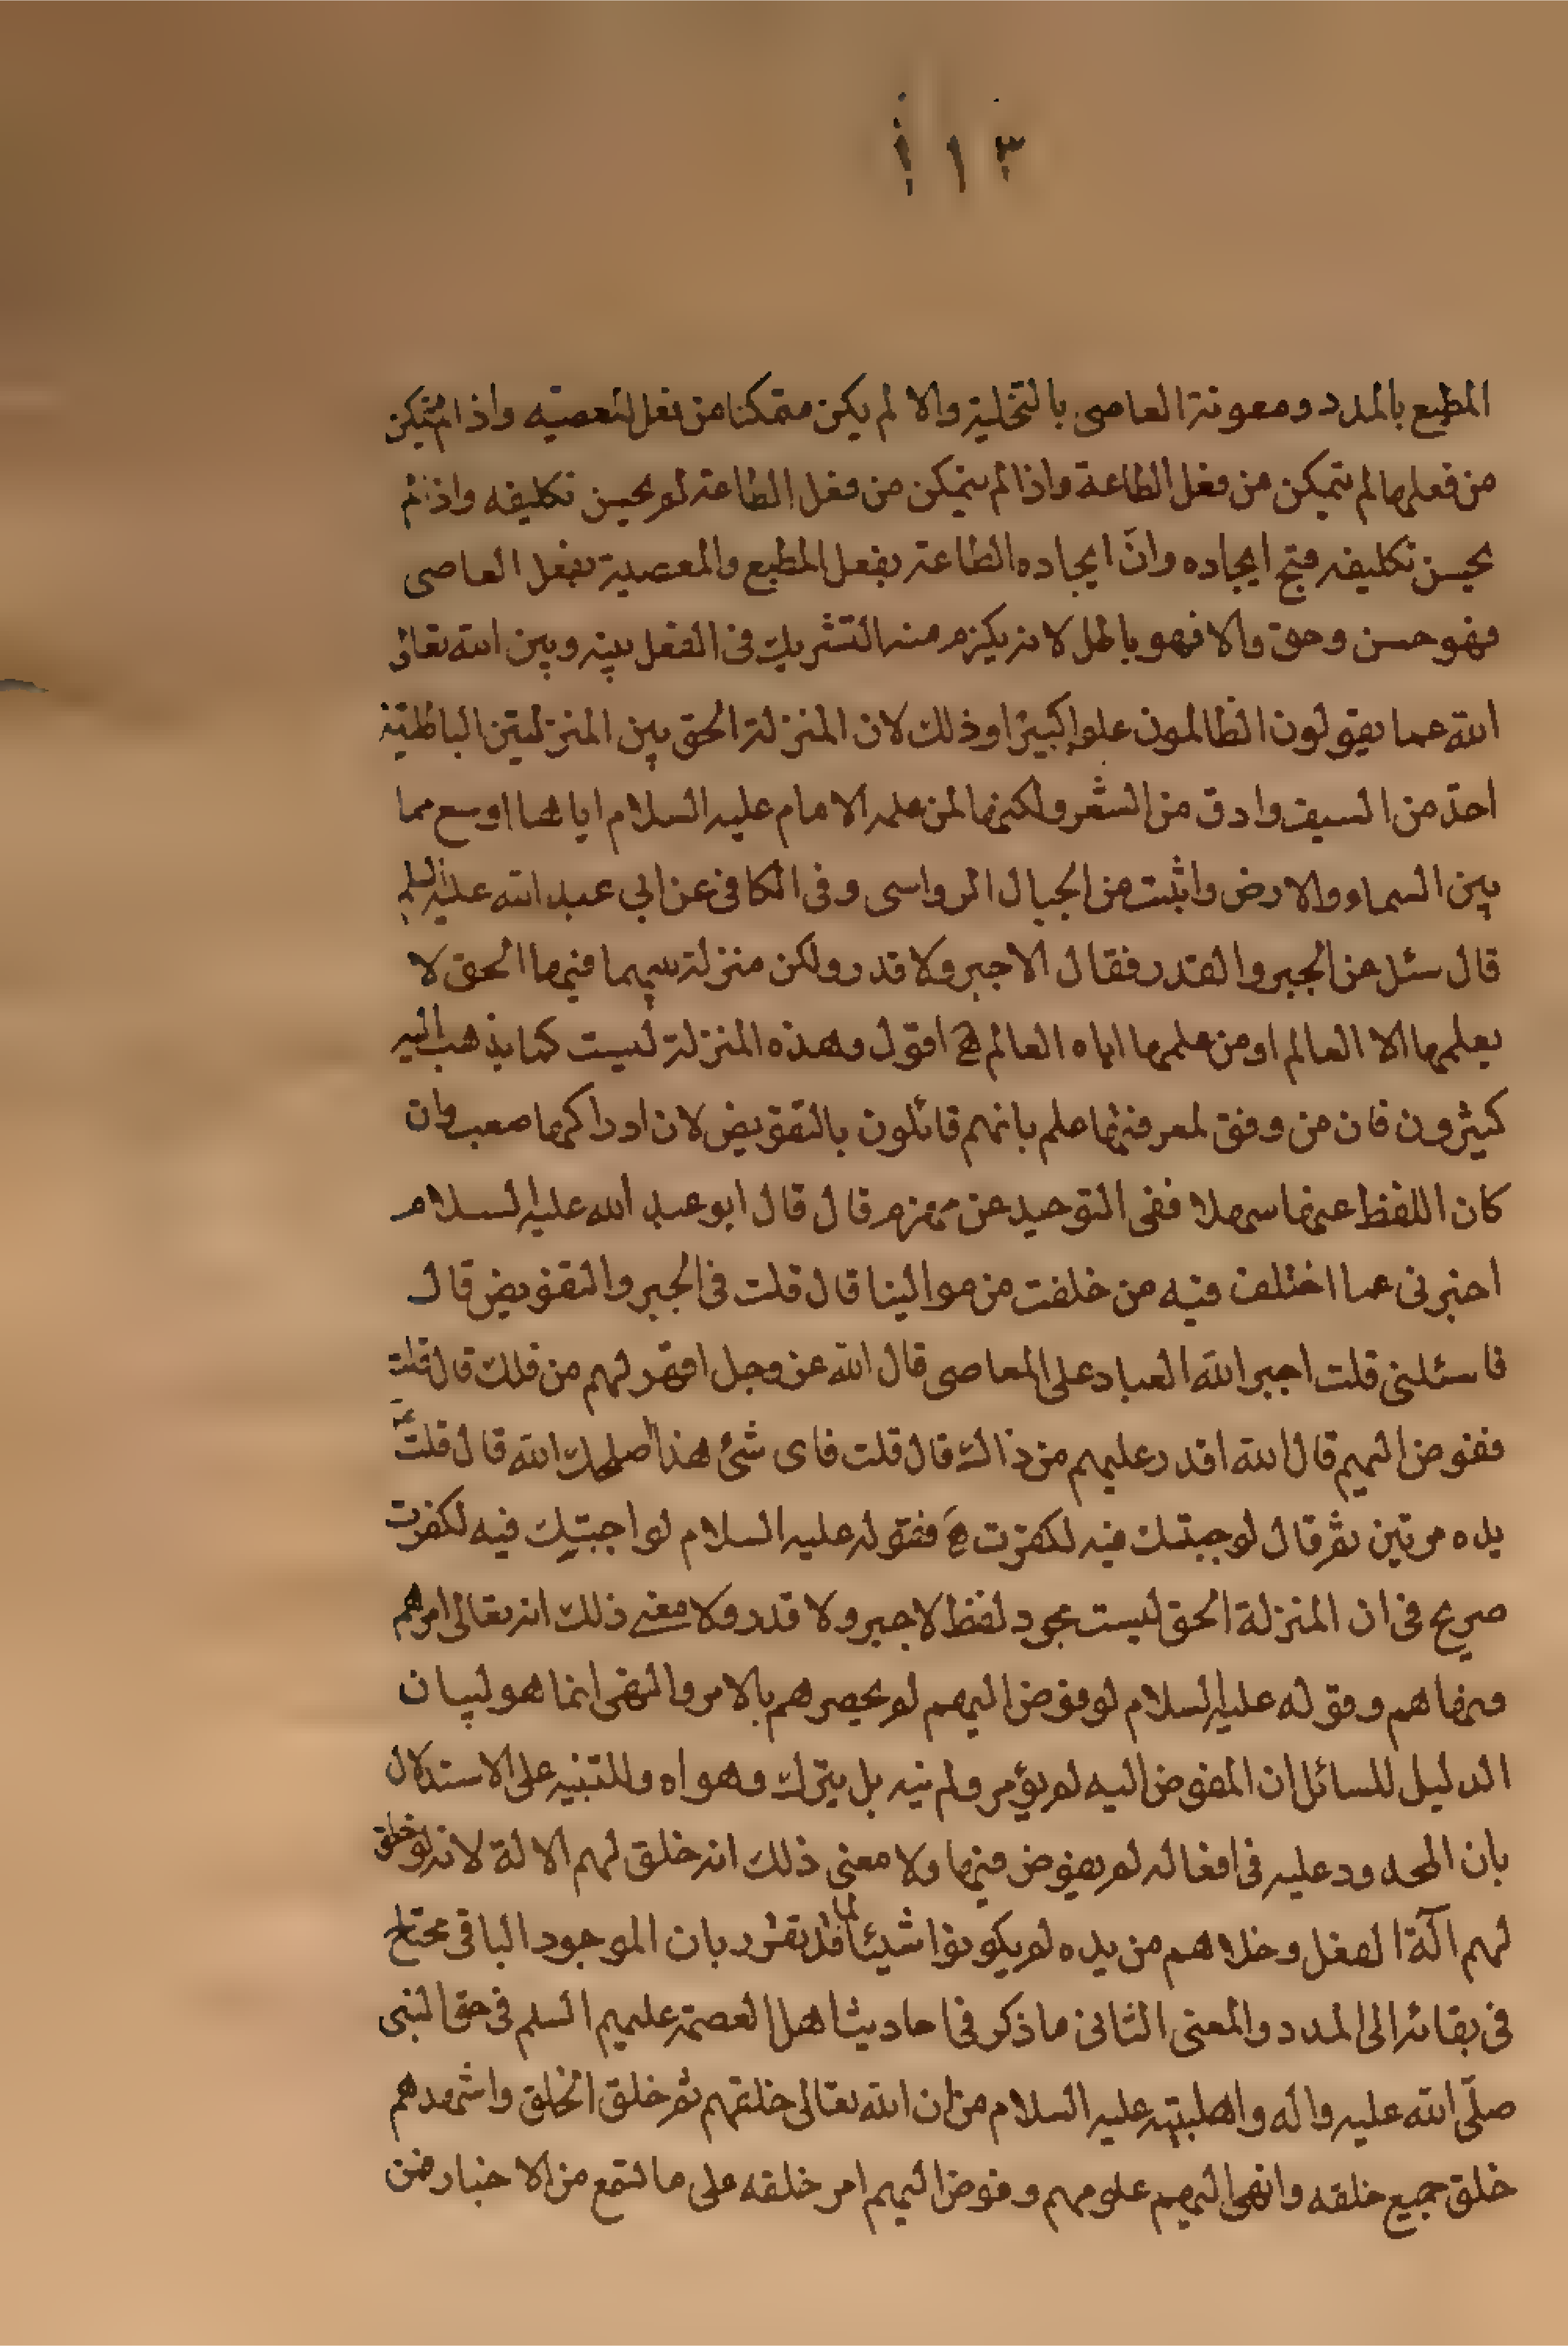 ١١٣
المطيع بالمدد ومعونة العاصى بالتخلية والا لم يكن متمكنا من فعل المعصية واذا لم يتمكن
من فعلها لم يتمكن من فعل الطاعة واذا لم يتمكن من فعل الطاعة لم يحسن تكليفه واذا لم
يحسن تكليفه قبح ايجاده وانّ ايجاده الطاعة بفعل المطيع والمعصية بفعل العاصى
فهو حسن وحق والا فهو باطل لانه يلزم منه التشريك فى الفعل بينه وبين الله تعالى
الله عما يقولون الظالمون علوا كبيرا وذلك لان المنزلة الحق بين المنزلتين الباطلتين
احدّ من السيف وادق من الشعر ولكنها لمن علمه الامام عليه السلام اياها اوسع مما
بين السماء والارض واثبت من الجبال الرواسى وفى الكافى عن ابي عبد الله عليه السلم
قال سئل عن الجبر والقدر فقال لا جبر ولا قدر ولكن منزلة بينهما فيها الحق لا
يعلمها الا العالم او من علمها اياه العالم هٓ اقول وهذه المنزلة ليست كما يذهب اليه
كثيرون فان من وفق لمعرفتها علم بانهم قائلون بالتفويض لان ادراكها صعب وان
كان اللفظ عنها سهلا ففى التوحيد عن مهزم قال قال ابو عبد الله عليه السلام
اخبرنى عما اختلف فيه من خلفت من موالينا قال قلت فى الجبر والتفويض قال
فاسئلنى قلت اجبر الله العباد على المعاصى قال الله عز وجل اقهر لهم من ذلك قال قلت
ففوض اليهم قال الله اقدر عليهم من ذالك قال قلت فاى شئ هذا اصلحك الله قال قلت
يده مرتين ثم قال لو جبتك فيه لكفرت هٓ فقوله عليه السلام لو اجبتك فيه لكفرت
صريح فى ان المنزلة الحق ليست مجرد لفظ لا جبر ولا قدر ولا معنى ذلك انه تعالى امرهم
ونهاهم وقوله عليه السلام لو فوض اليهم لم يحصرهم بالامر والنهى انما هو لبيان
الدليل للسائل ان المفوض اليه لم يؤمر ولم ينه بل يترك وهواه وللتنبيه على الاستدلال
بان المحدود عليه فى افعاله لم يفوض فيها ولا معنى ذلك انه خلق لهم الالة لانه لو خلق
لهم آلة الفعل وخلاهم من يده لم يكونوا شيئا لما قد تقرر بان الموجود الباقى محتاج
فى بقائه الى المدد والمعنى الثانى ما ذكر فى احاديث اهل العصمة عليهم السلم فى حق النبى
صلّى الله عليه واله واهل بيته عليه السلام من ان الله تعالى خلقهم ثم خلق الخلق واشهدهم
خلق جميع خلقه وانهى اليهم علومهم وفوض اليهم امر خلقه على ما تسمع من الاخبار فمن